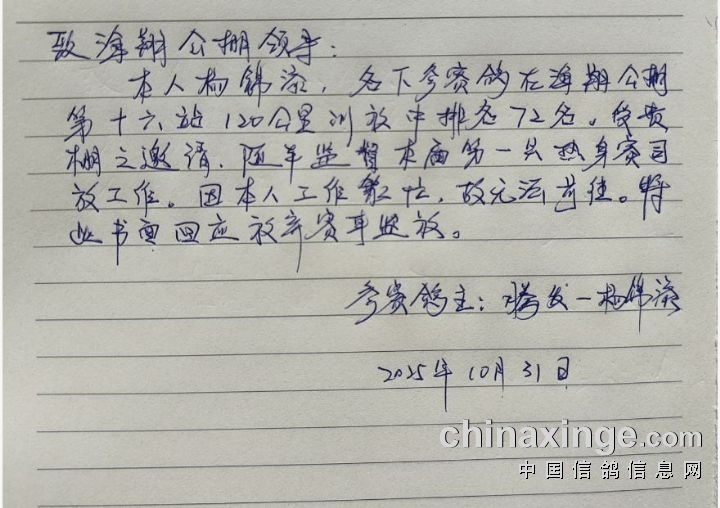 致海翔公棚领导：
本人杨锦添，名下参赛鸽在海翔公棚
第十六站120公里训放中排名72名。受贵
棚之邀请，随车监督本届第一只热身赛司
放工作。因本人工作繁忙，故无法前往。特
此书面回应放弃赛车监放。
参赛鸽主：腾发－杨锦添
2025年10月31日
chinaxinge.com
中国信鸽信息网